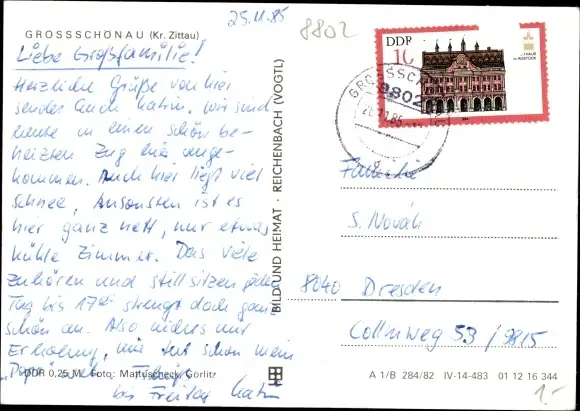 25.11.85
8802
GROSSSCHÖNAU (Kr. Zittau)
Liebe Großfamilie!
Herzliche Grüße von hier
sendet Euch Katrin, wir sind
heute in einen schön be-
heizten Zug hier ange-
kommen. Auch hier liegt viel
Schnee, Ansonsten ist es
hier ganz nett, nur etwas
kühle Zimmer. Das viele
zuhören und stillsitzen jeden
Tag bis 17 strengt doch ganz
schön an. Also nichts mit
Erholung, wie seit schon mein
"Papa"
bis Freitag Katrin
DDR 0,25 M Foto: Martuscheck, Görlitz
BILD UND HEIMAT · REICHENBACH (VOGTL)
DDR
10
RATHAUS
ROSTOCK
GROSSSCH
8802
.11.85
Familie
S. Novák
8040 Dresden
Collnweg 53 / 9815
A 1/B 284/82 IV-14-483 01 12 16 344
1.-